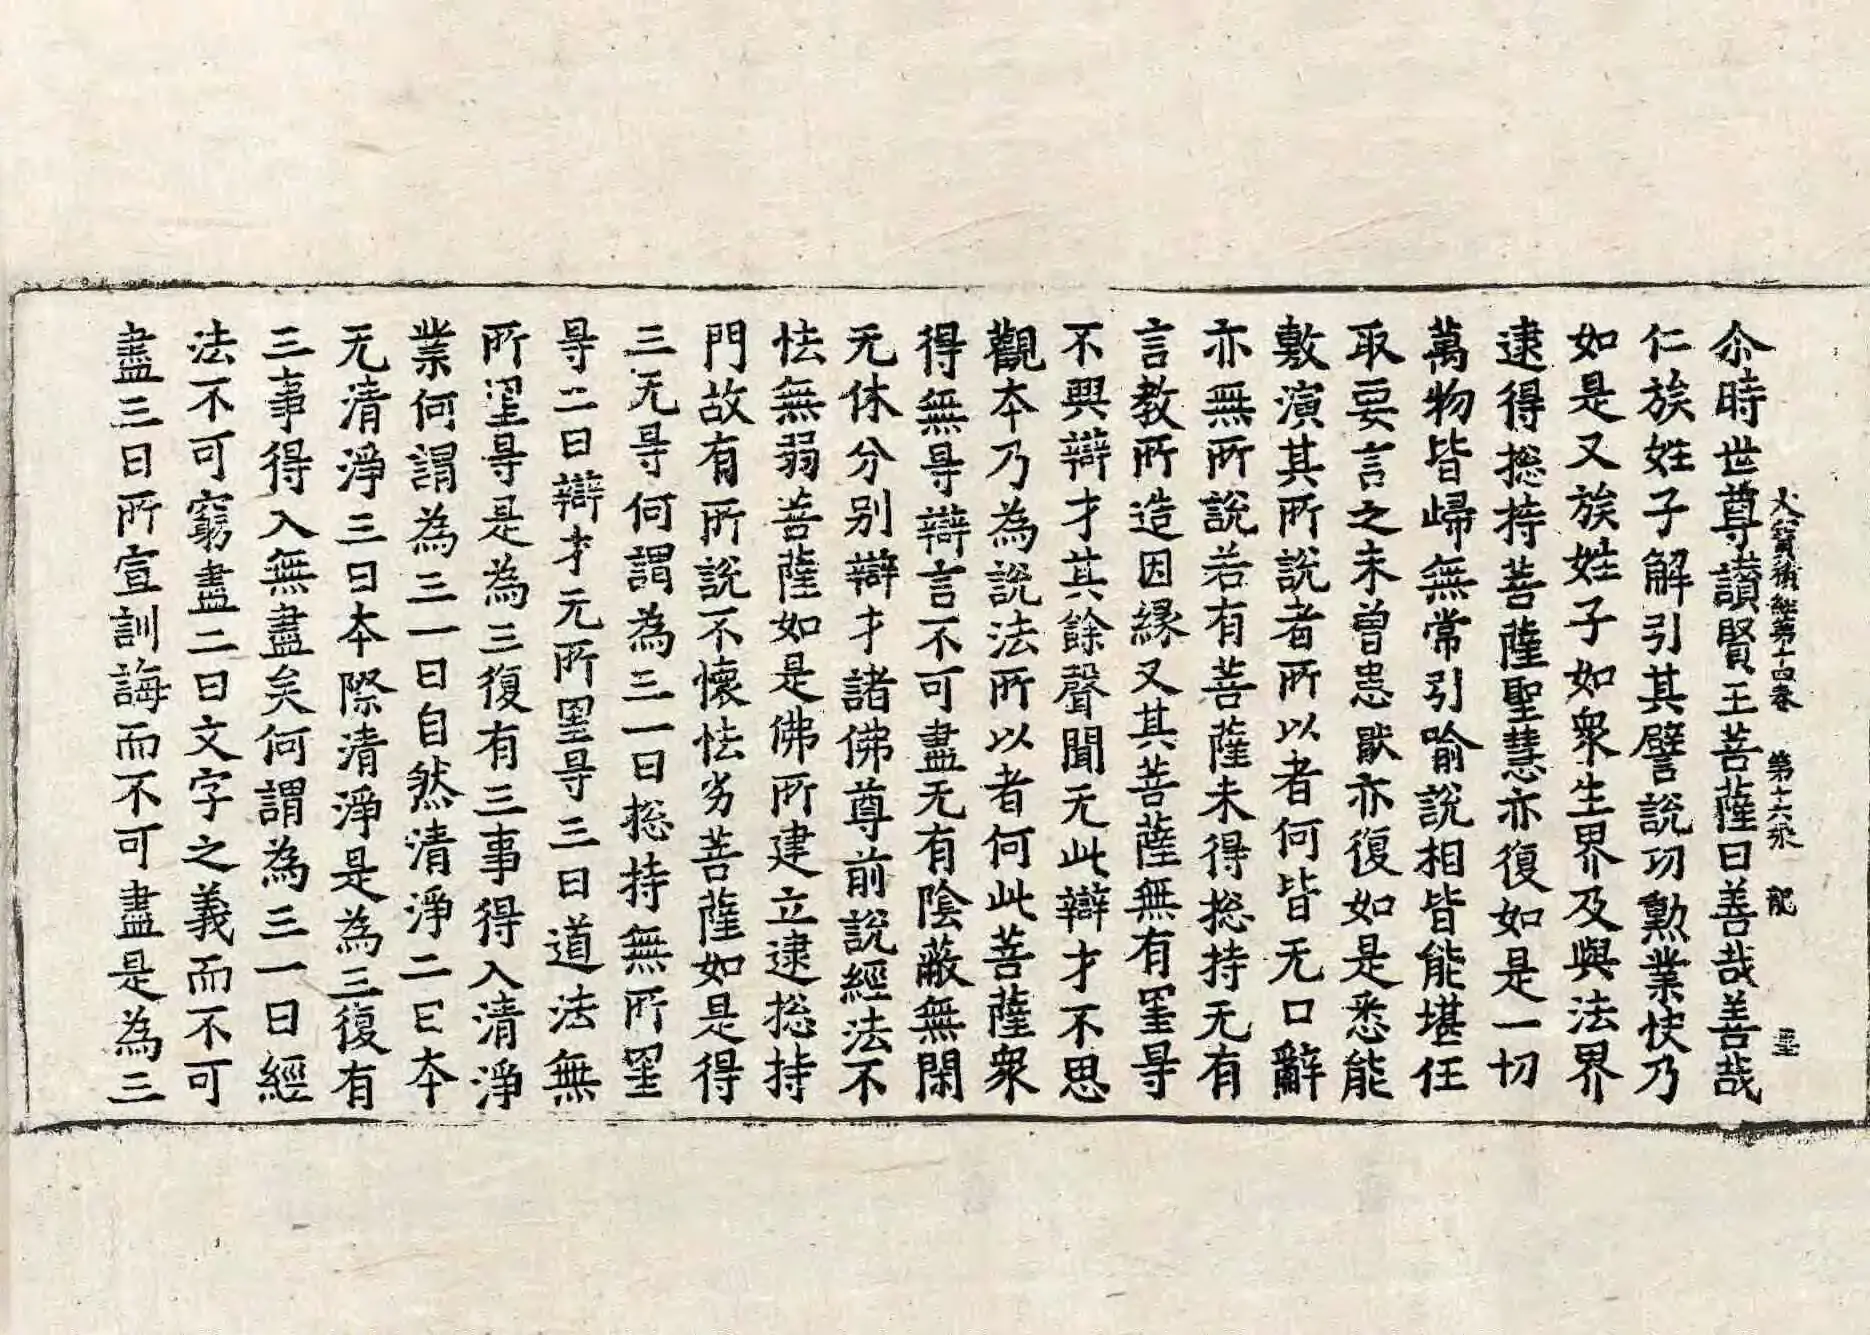 大寳積經第十四卷 第十六張 龍
尒時世尊讃賢王菩薩曰善哉善哉
仁族姓子解引其譬說功勲業快乃
如是又族姓子如衆生界及與法界
逮得捴持菩薩聖慧亦復如是一切
萬物皆歸無常引喻說相皆能堪任
取要言之未曾恚猒亦復如是悉能
敷演其所說者所以者何皆无口辭
亦無所說若有菩薩未得捴持无有
言教所造因緣又其菩薩無有罣㝵
不興辯才其餘聲聞无此辯才不思
觀本乃為說法所以者何此菩薩衆
得無㝵辯言不可盡无有陰蔽無閑
无休分別辯才諸佛尊前說經法不
怯無弱菩薩如是佛所建立逮捴持
門故有所說不懷怯劣菩薩如是得
三无㝵何謂為三一曰捴持無所罣
㝵二曰辯才无所罣㝵三曰道法無
所罣㝵是為三復有三事得入清淨
業何謂為三一曰自然清淨二曰本
无清淨三曰本際清淨是為三復有
三事得入無盡矣何謂為三一曰經
法不可窮盡二曰文字之義而不可
盡三曰所宣訓誨而不可盡是為三